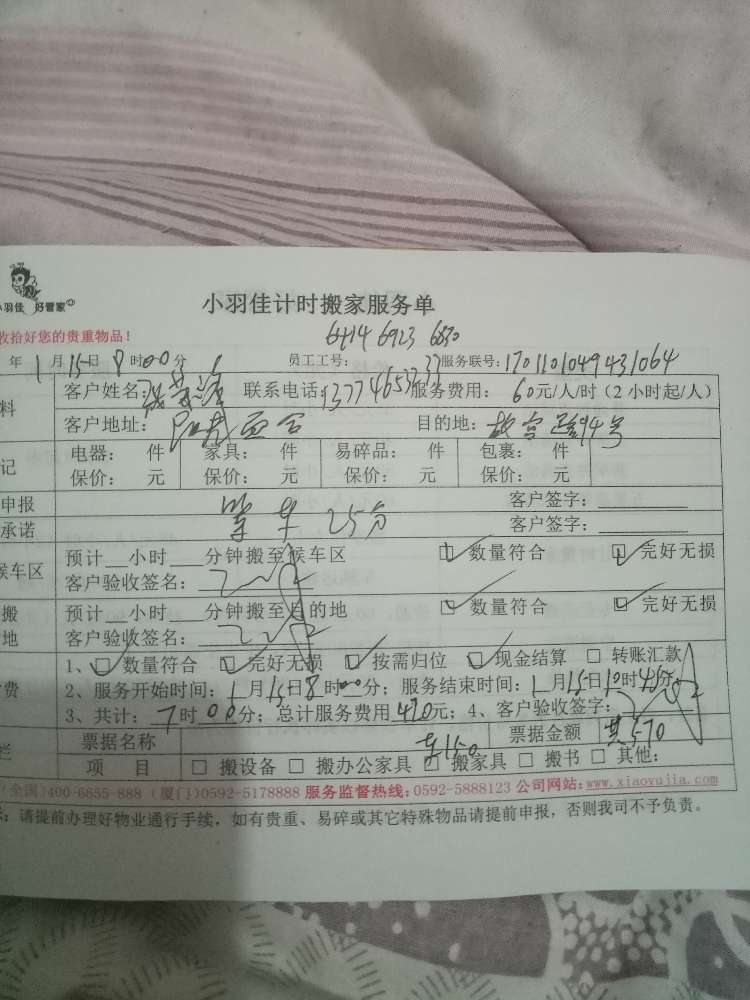 小羽佳 好管家
小羽佳计时搬家服务单
收拾好您的贵重物品!
6414 6923 6830
年1月15日8时00分 员工工号: 服务联号:1701101049431064
料 客户姓名: 联系电话:13774653333 服务费用: 60元/人/时(2小时起/人)
客户地址: 目的地:故宫路94号
记 电器: 件 家具: 件 易碎品: 件 包裹: 件
保价: 元 保价: 元 保价: 元 保价: 元
申报 客户签字:
等车25分
承诺 客户签字:
候车区 预计__小时___分钟搬至候车区 数量符合 完好无损
客户验收签名:
搬 预计__小时___分钟搬至目的地 数量符合 完好无损
地 客户验收签名:
1、数量符合 完好无损 按需归位 现金结算 转账汇款
费 2、服务开始时间:1月15日8时00分;服务结束时间:1月15日10时45分
3、共计:7时00分;总计服务费用420元;4、客户验收签字:
栏 票据名称 车150 票据金额 共570
项 目 搬设备 搬办公家具 搬家具 搬书 其他:
(全国)400-6655-888 (厦门)0592-5178888 服务监督热线:0592-5888123 公司网站:www.xiaoyujia.com
:请提前办理好物业通行手续,如有贵重、易碎或其它特殊物品请提前申报,否则我司不予负责。